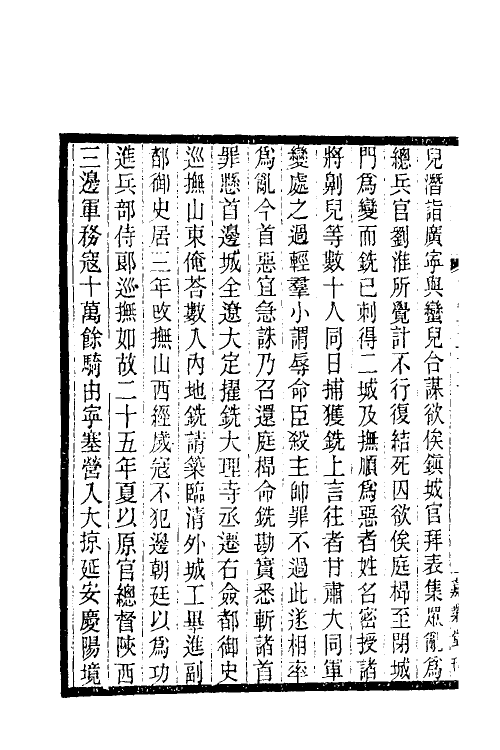 兒潛詣廣寧與蠻兒合謀欲俟鎮城官拜表集眾亂爲
總兵官劉淮所覺計不行復結死囚欲俟庭㭿至閉城
門爲變而銑已刺得二城及撫順爲惡者姓名密授諸
將剿兒等數十人同日捕獲銑上言往者甘肅大同軍
變處之過輕羣小謂辱命臣殺主帥罪不過此遂相率
爲亂今首惡宜急誅乃召還庭㭿命銑勘實悉斬諸首
罪懸首邊城全遼大定擢銑大理寺丞遷右僉都御史
巡撫山東俺荅數入內地銑請築臨清外城工畢進副
都御史居三年改撫山西經歲寇不犯邊朝廷以爲功
進兵部侍郎巡撫如故二十五年夏以原官總督陝西
三邊軍務寇十萬餘騎由寧塞營入大掠延安慶陽境